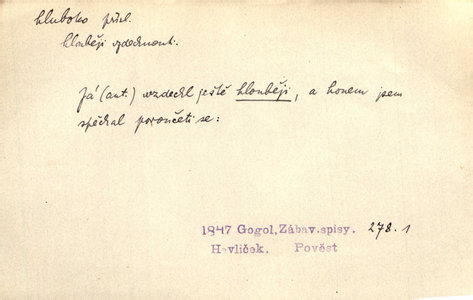 hluboko přísl.
hlouběji vzdechnouti.
Já (aut.) vzdechl ještě hlouběji, a honem jsem
spěchal poroučeti se:
1847 Gogol, Zábav.spisy. 278.1
Havlíček. Pověst